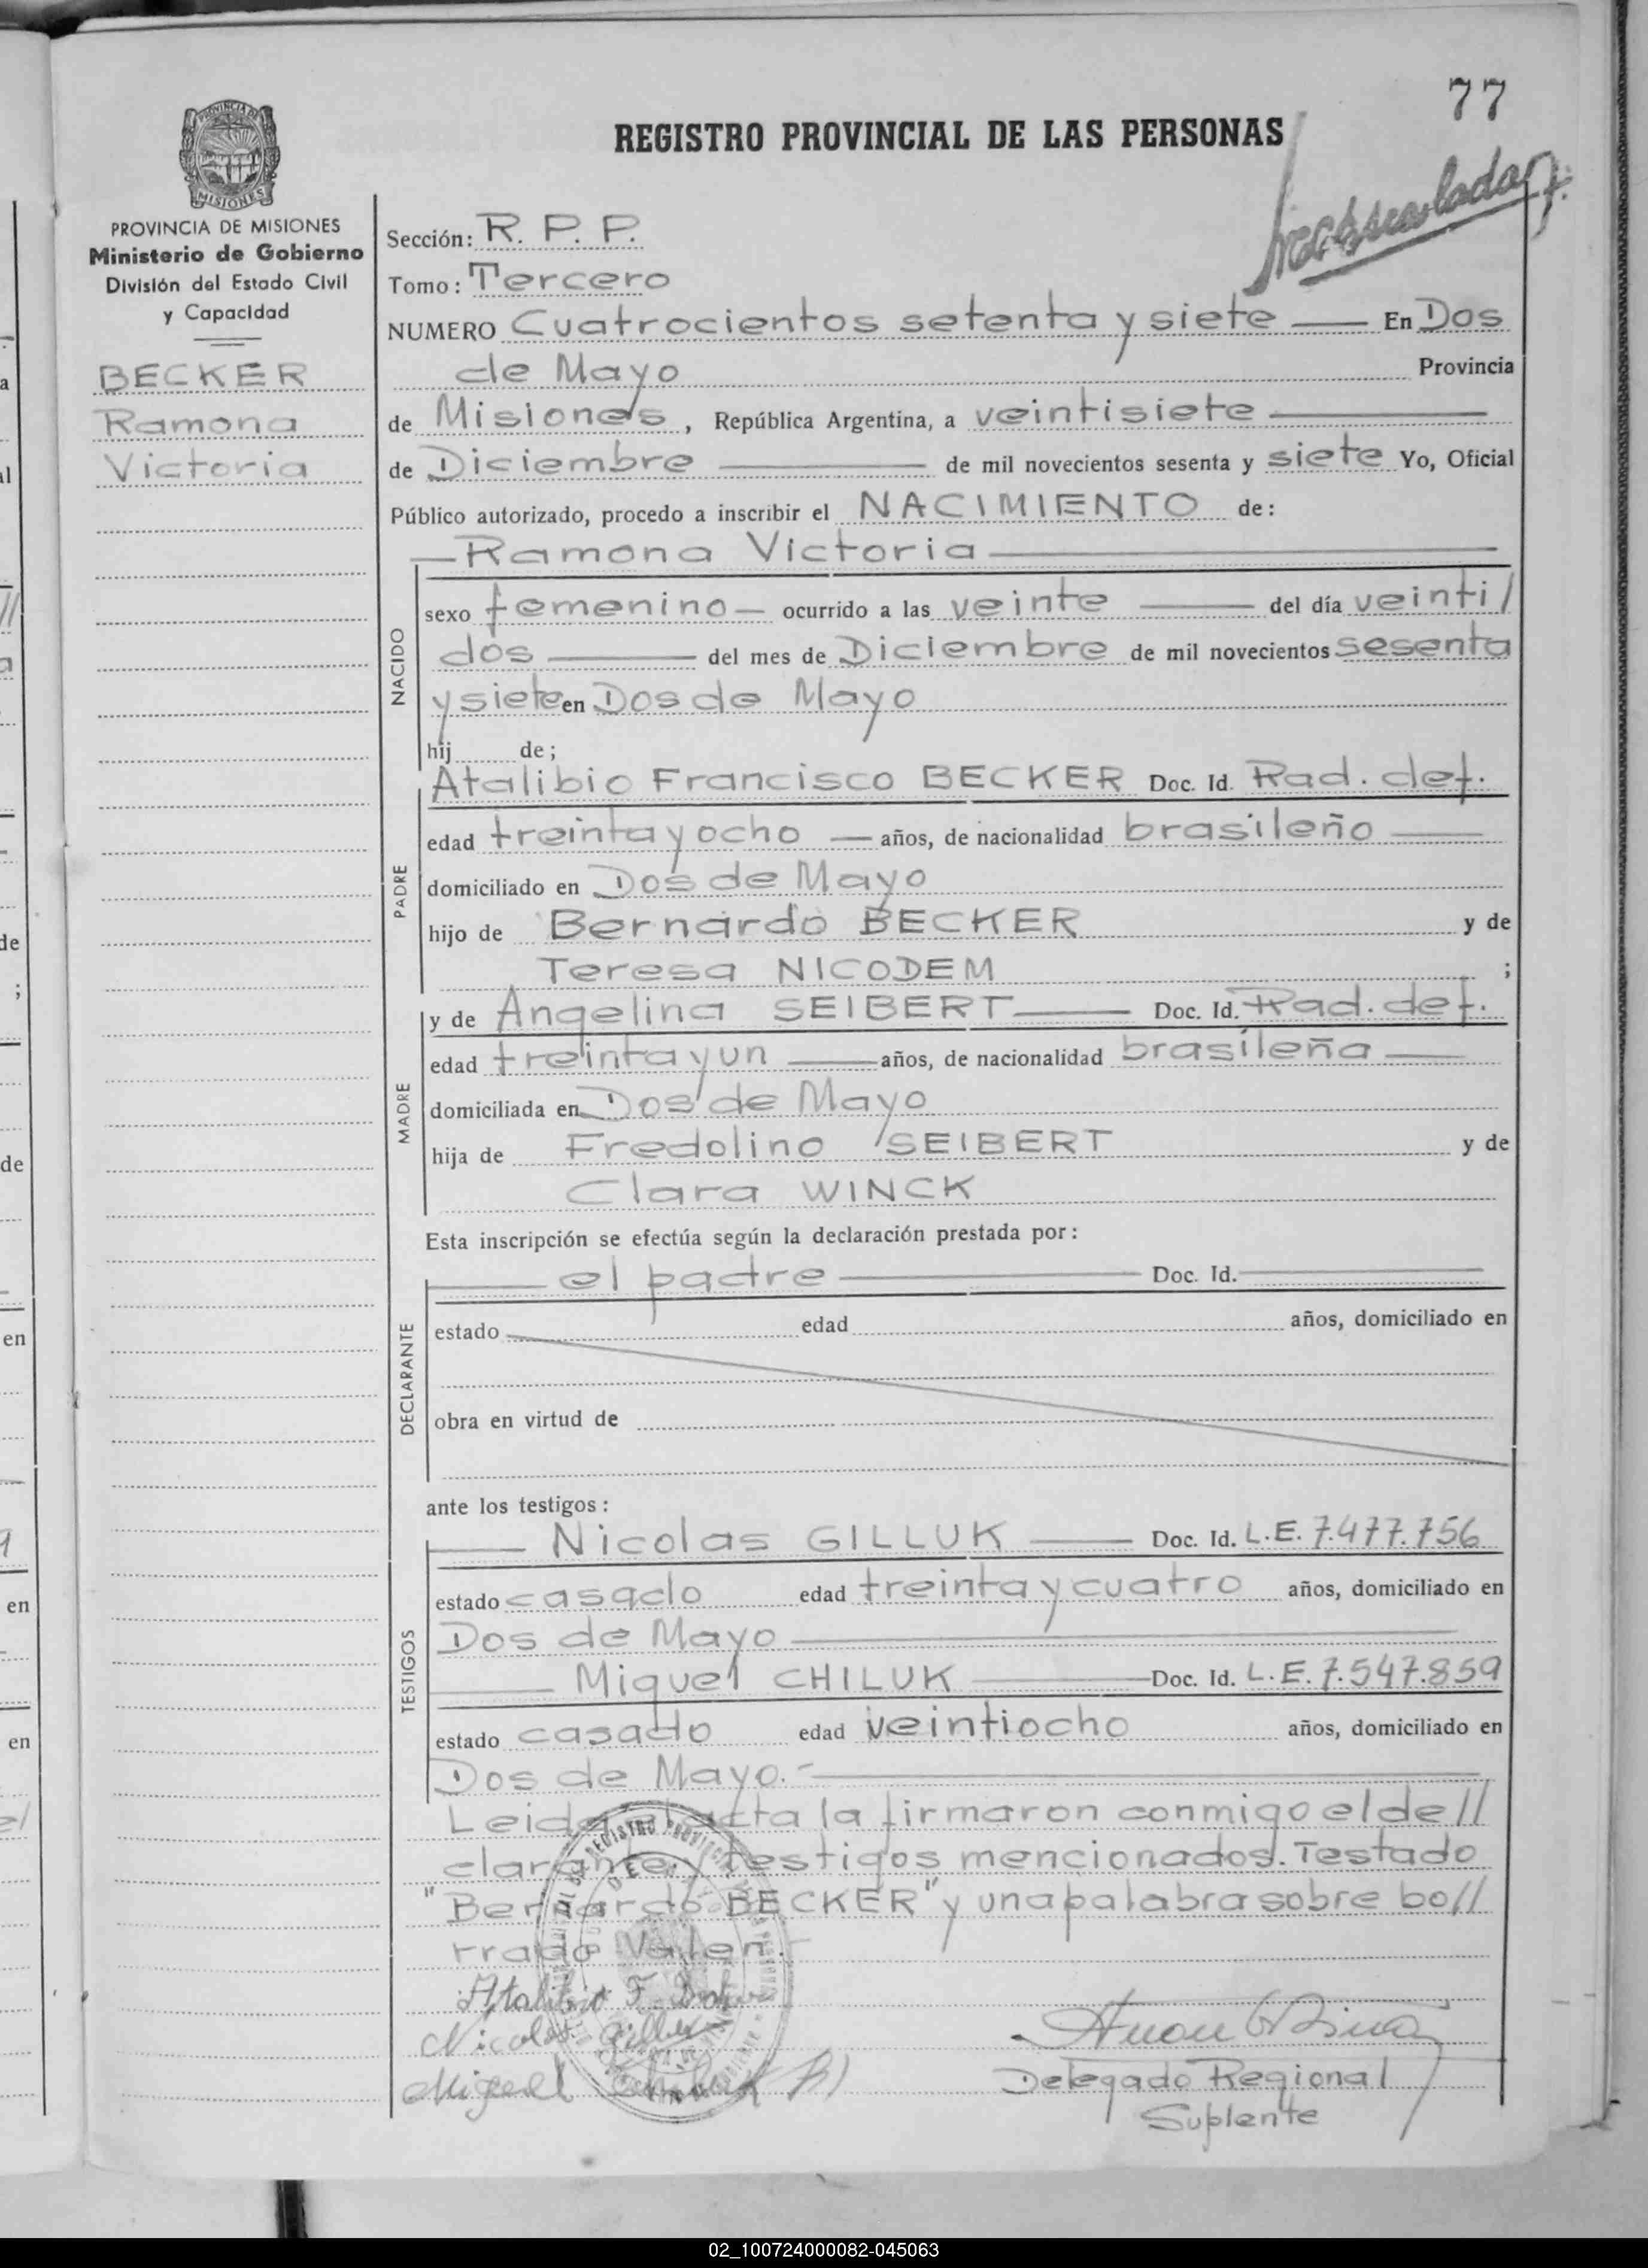 77
REGISTRO PROVINCIAL DE LAS PERSONAS
PROVINCIA DE MISIONES
Ministerio de Gobierno
División del Estado Civil
y Capacidad
BECKER
Ramona
Victoria
Sección: R. P. P.
Tomo: Tercero
NUMERO Cuatrocientos setenta y siete — En Dos
de Mayo Provincia
de Misiones, República Argentina, a veintisiete —
de Diciembre — de mil novecientos sesenta y siete Yo, Oficial
Público autorizado, procedo a inscribir el NACIMIENTO de:
— Ramona Victoria —
NACIDO
sexo femenino — ocurrido a las veinte — del día veinti/
dos — del mes de Diciembre de mil novecientos sesenta
y siete en Dos de Mayo
hij de;
Atalibio Francisco BECKER Doc. Id. Rad. def.
PADRE
edad treinta y ocho — años, de nacionalidad brasileño —
domiciliado en Dos de Mayo
hijo de Bernardo BECKER y de
Teresa NICODEM ;
y de Angelina SEIBERT — Doc. Id. Rad. def.
MADRE
edad treinta y un — años, de nacionalidad brasileña —
domiciliada en Dos de Mayo
hija de Fredolino SEIBERT y de
Clara WINCK
Esta inscripción se efectúa según la declaración prestada por:
— el padre — Doc. Id. —
DECLARANTE
estado edad años, domiciliado en
obra en virtud de
ante los testigos:
— Nicolas GILLUK — Doc. Id. L.E. 7.477.756
TESTIGOS
estado casado edad treinta y cuatro años, domiciliado en
Dos de Mayo —
— Miguel CHILUK — Doc. Id. L.E. 7.547.859
estado casado edad veintiocho años, domiciliado en
Dos de Mayo.- —
Leida el acta la firmaron conmigo el de//
clarante y testigos mencionados. Testado
"Bernardo BECKER" y una palabra sobre bo//
rrado Valen.
Atalibio F.
Nicolas Gilluk
Miguel
Delegado Regional
Suplente
02_100724000082-045063